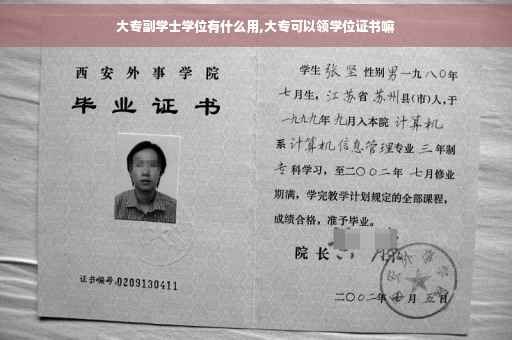 大专副学士学位有什么用,大专可以领学位证书嘛
西安外事学院
毕业证书
证书编号:0209130411
学生 张坚 性别男 一九八〇年
七月生, 江苏省 苏州县(市)人, 于
一九九九年 九月入本院 计算机
系 计算机信息管理专业 三 年制
专科学习, 至二〇〇二年 七月修业
期满, 学完教学计划规定的全部课程,
成绩合格, 准予毕业。
院长
二〇〇二年 月 五日